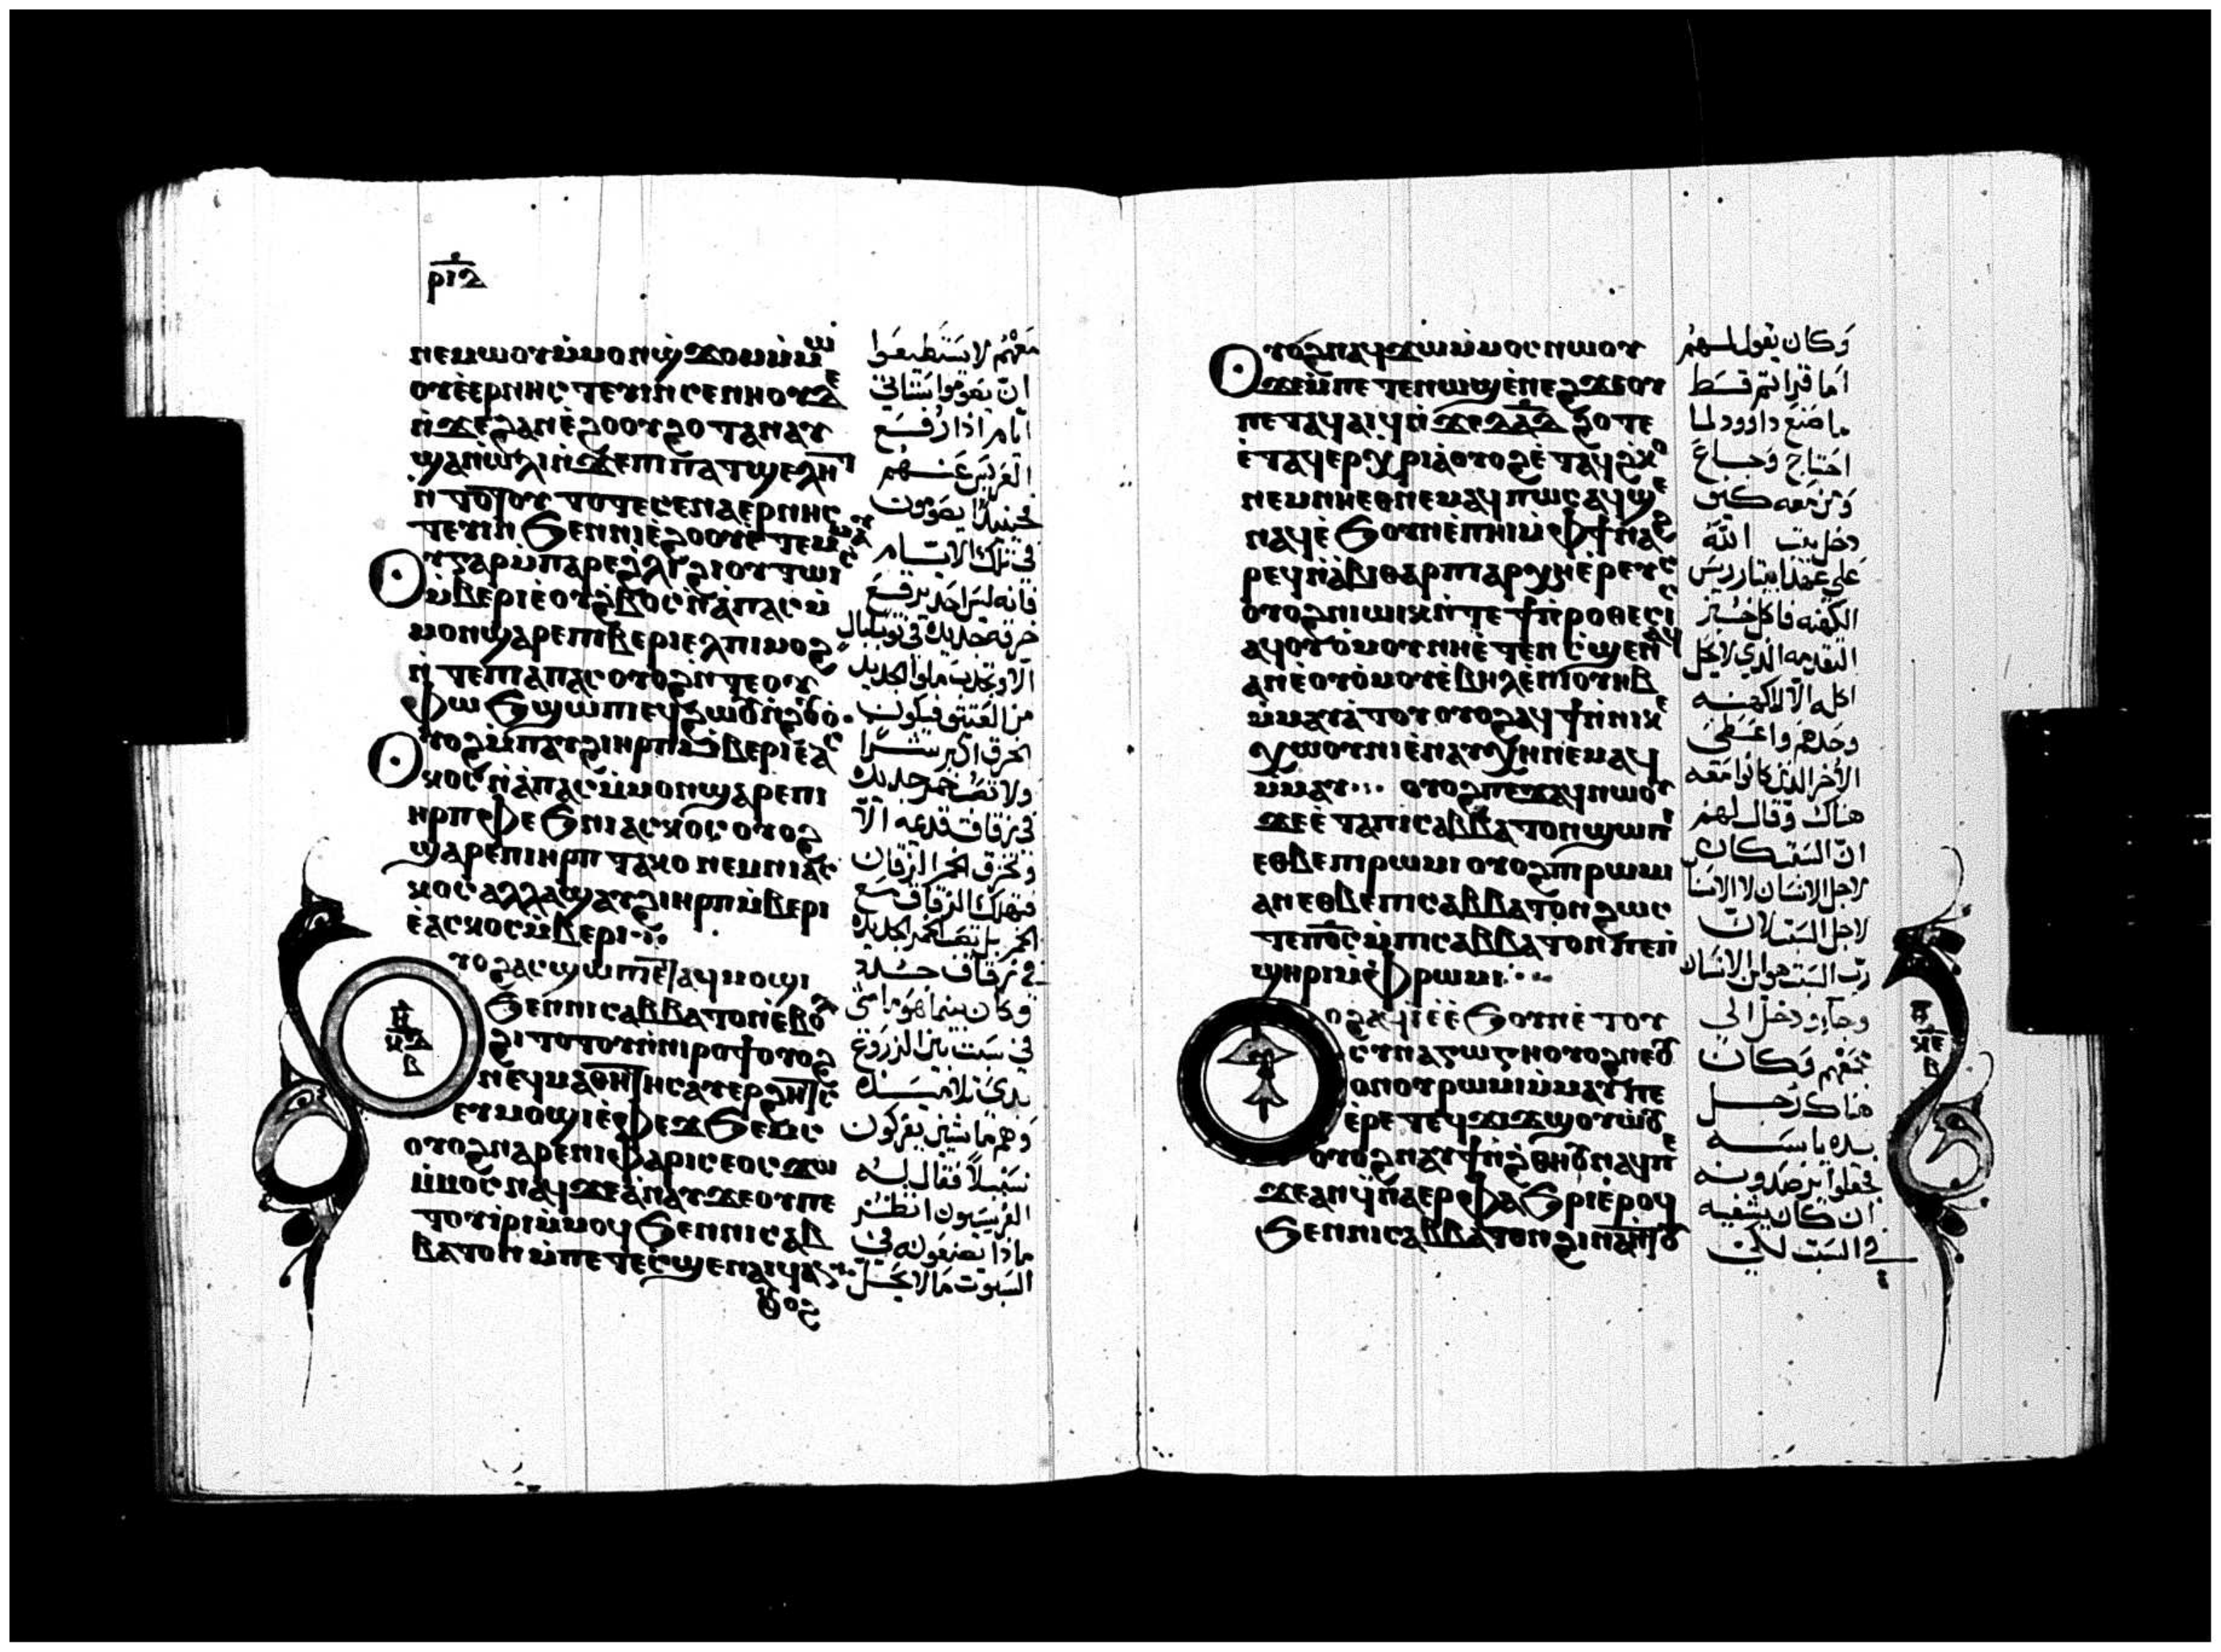 ⲣⲓⲇ
ⲛⲉⲙⲱⲟⲩ ⲙ̀ⲙⲟⲛ ϣϫⲟⲙ ⲙ̀ⲙⲱ
ⲟⲩ ⲉ̀ⲉⲣⲛⲏⲥⲧⲉⲩⲓⲛ ⲥⲉⲛⲏⲟⲩ ⲇⲉ
ⲛ̀ϫⲉ ϩⲁⲛⲉ̀ϩⲟⲟⲩ ϩⲟⲧⲁⲛ ⲁⲩ
ϣⲁⲛⲱ̀ⲗⲓ ⲛ̀ϫⲉ ⲡⲓⲡⲁⲧϣⲉⲗⲏⲧ
ⲛ̀ⲧⲟⲧⲟⲩ ⲧⲟⲧⲉ ⲥⲉⲛⲁⲉⲣⲛⲏⲥ
ⲧⲉⲩⲓⲛ ϧⲉⲛ ⲛⲓⲉ̀ϩⲟⲟⲩ ⲉ̀ⲧⲉⲙⲙⲁⲩ
ⲟⲩ ⲅⲁⲣ ⲙ̀ⲡⲁⲣⲉ ϩ̀ⲗⲓ ϩⲓⲟⲩⲧⲱⲓⲥ
ⲙ̀ⲃⲉⲣⲓ ⲉ̀ⲟⲩϩ̀ⲃⲟⲥ ⲛ̀ⲁⲡⲁⲥ ⲙ̀
ⲙⲟⲛ ϣⲁⲣⲉ ⲡⲓⲃⲉⲣⲓ ⲉⲗ ⲡⲓⲙⲟϩ
ⲛ̀ⲧⲉ ⲡⲓⲁⲡⲁⲥ ⲟⲩⲟϩ ⲛ̀ⲧⲉ ⲟⲩ
ⲫⲱϧ ϣⲱⲡⲓ ⲉϥϩⲱⲟⲩ ⲛ̀ϩⲟⲩⲟ
ⲟⲩⲟϩ ⲙ̀ⲡⲁⲩϩⲓ ⲏⲣⲡ ⲙ̀ⲃⲉⲣⲓ ⲉ̀ⲁⲥ
ⲕⲟⲥ ⲛ̀ⲁⲡⲁⲥ ⲙ̀ⲙⲟⲛ ϣⲁⲣⲉ ⲡⲓ
ⲏⲣⲡ ⲫⲉϧ ⲛⲓⲁⲥⲕⲟⲥ ⲟⲩⲟϩ
ϣⲁⲣⲉ ⲡⲓⲏⲣⲡ ⲧⲁⲕⲟ ⲛⲉⲙ ⲛⲓⲁⲥ
ⲕⲟⲥ ⲁⲗⲗⲁ ϣⲁⲩϩⲓ ⲏⲣⲡ ⲙ̀ⲃⲉⲣⲓ
ⲉ̀ⲁⲥⲕⲟⲥ ⲙ̀ⲃⲉⲣⲓ
ⲟⲩⲟϩ ⲁⲥϣⲱⲡⲓ ⲉⲧⲁϥⲙⲟϣⲓ
ϧⲉⲛ ⲛⲓⲥⲁⲃⲃⲁⲧⲟⲛ ⲉ̀ⲃⲟⲗ
ϩⲓⲧⲟⲧⲟⲩ ⲛ̀ⲛⲓⲣⲟϯ ⲟⲩⲟϩ
ⲛⲉϥⲙⲁⲑⲏⲧⲏⲥ ⲁⲩⲉⲣϩⲏⲧⲥ
ⲉⲩⲙⲟϣⲓ ⲉ̀ⲫⲉϫ ϧⲉⲙⲥ
ⲟⲩⲟϩ ⲛⲁⲣⲉ ⲛⲓⲫⲁⲣⲓⲥⲉⲟⲥ ϫⲱ
ⲙ̀ⲙⲟⲥ ⲛⲁϥ ϫⲉ ⲁⲛⲁⲩ ϫⲉ ⲟⲩ ⲡⲉ
ⲧⲟⲩⲓⲣⲓ ⲙ̀ⲙⲟϥ ϧⲉⲛ ⲛⲓⲥⲁⲃ
ⲃⲁⲧⲟⲛ ⲙ̀ⲡⲉⲧⲉⲥϣⲉ ⲛⲁⲓϥ ⲁⲛ
معهم لا يستطيعوا
ان يصوموا ستاتي
ايام اذا رفع
العريس عنهم
فحينيذ يصومون
في تلك الايام
فانه ليس احد يرقع
خرقه جديده في ثوب بال
الا وتجذب ملو الجديد
من العتيق فيكون
الخرق اكبر شرا
ولا تصب خمر جديده
في زقاق قدمه الا
وتخرق الخمر الزقاق
فتهلك الزقاق مع
الخمر بل تصب الخمر الجديده
في زقاق جدد
وكان بينما هو ماشي
في سبت بين الزروع
بدى تلاميذه
وهم ماشيين يفركون
سنبلا فقال له
الفريسيون انظر
ماذا يصنعون في
السبوت ما لا يحل
ⲟⲩⲟϩ
ⲟⲩⲟϩ ⲛⲁϥϫⲱ ⲙ̀ⲙⲟⲥ ⲛⲱⲟⲩ
ϫⲉ ⲙ̀ⲡⲉⲧⲉⲛⲱϣ ⲉ̀ⲛⲉϩ ϫⲉ ⲟⲩ
ⲡⲉⲧⲁϥⲁⲓϥ ⲛ̀ϫⲉ ⲇⲁⲇ ϩⲟⲧⲉ
ⲉ̀ⲧⲁϥⲉⲣⲭⲣⲓⲁ ⲟⲩⲟϩ ⲉ̀ⲧⲁϥϩⲕⲟ
ⲛⲉⲙ ⲛⲏ ⲉⲑⲛⲉⲙⲁϥ ⲡⲱⲥ ⲁϥϣⲉ
ⲛⲁϥ ⲉ̀ϧⲟⲩⲛ ⲉ̀ⲡⲏⲓ ⲙ̀ⲫϯ ⲛⲁϩ
ⲣⲉⲛ ⲁⲃⲓⲑⲁⲣ ⲡⲓⲁⲣⲭⲏⲉⲣⲉⲩⲥ
ⲟⲩⲟϩ ⲛⲓⲱⲓⲕ ⲛ̀ⲧⲉ ϯⲡⲣⲟⲑⲉⲥⲓⲥ
ⲁϥⲟⲩⲟⲙⲟⲩ ⲛⲏ ⲉ̀ⲧⲉⲛⲥϣⲉ ⲛⲁϥ
ⲁⲛ ⲉ̀ⲟⲩⲟⲙⲟⲩ ⲉ̀ⲃⲏⲗ ⲉ̀ⲛⲓⲟⲩⲏⲃ
ⲙ̀ⲙⲁⲩⲁⲧⲟⲩ ⲟⲩⲟϩ ⲁϥϯ ⲛ̀ⲛⲓⲕⲉ
ⲭⲱⲟⲩⲛⲓ ⲉ̀ⲛⲁⲩⲭⲏ ⲛⲉⲙⲁϥ
ⲙ̀ⲙⲁⲩ ⲟⲩⲟϩ ⲡⲉϫⲁϥ ⲛⲱⲟⲩ
ϫⲉ ⲉ̀ⲧⲁ ⲡⲓⲥⲁⲃⲃⲁⲧⲟⲛ ϣⲱⲡⲓ
ⲉⲑⲃⲉ ⲡⲓⲣⲱⲙⲓ ⲟⲩⲟϩ ⲡⲓⲣⲱⲙⲓ
ⲁⲛ ⲉⲑⲃⲉ ⲡⲓⲥⲁⲃⲃⲁⲧⲟⲛ ϩⲱⲥ
ⲧⲉ ⲡϭⲥ ⲙ̀ⲡⲓⲥⲁⲃⲃⲁⲧⲟⲛ ⲡⲉ ⲡ̀
ϣⲏⲣⲓ ⲙ̀ⲫⲣⲱⲙⲓ
ⲟⲩⲟϩ ⲁϥⲓ̀ ⲉ̀ϧⲟⲩⲛ ⲉ̀ⲧⲟⲩ
ⲥⲩⲛⲁⲅⲱⲅⲏ ⲟⲩⲟϩ ⲛⲉⲟⲩ
ⲟⲛ ⲟⲩⲣⲱⲙⲓ ⲙ̀ⲙⲁⲩ ⲡⲉ
ⲉ̀ⲣⲉ ⲧⲉϥϫⲓϫ ϣⲟⲩⲱ̀ⲟⲩ
ⲟⲩⲟϩ ⲛⲁⲩϯ ⲛ̀ϩ̀ⲑⲏⲟⲩ ⲛⲁϥ ⲡⲉ
ϫⲉ ⲁⲛ ϥ̀ⲛⲁⲉⲣⲫⲁϧⲣⲓ ⲉ̀ⲣⲟϥ
ϧⲉⲛ ⲛⲓⲥⲁⲃⲃⲁⲧⲟⲛ ϩⲓⲛⲁ ⲛ̀ⲧⲟⲩ
وكان يقول لهم
اما قراتم قط
ما صنع داوود لما
احتاج وجاع
ومن معه كيف
دخل بيت الله
على عهد ابيتار ريس
الكهنه فاكل خبز
التقدمه الذي لا يحل
اكله الا للكهنه
وحدهم واعطى
الاخر الذين كانوا معه
هناك وقال لهم
ان السبت كان
لاجل الانسان لا الانسان
لاجل السبت لان
رب السبت هو ابن الانسان
وجا ودخل الى
مجمعهم وكان
هناك رجل
يده يابسه
فجعلوا يرصدونه
ان كان يشفيه
في السبت لكي